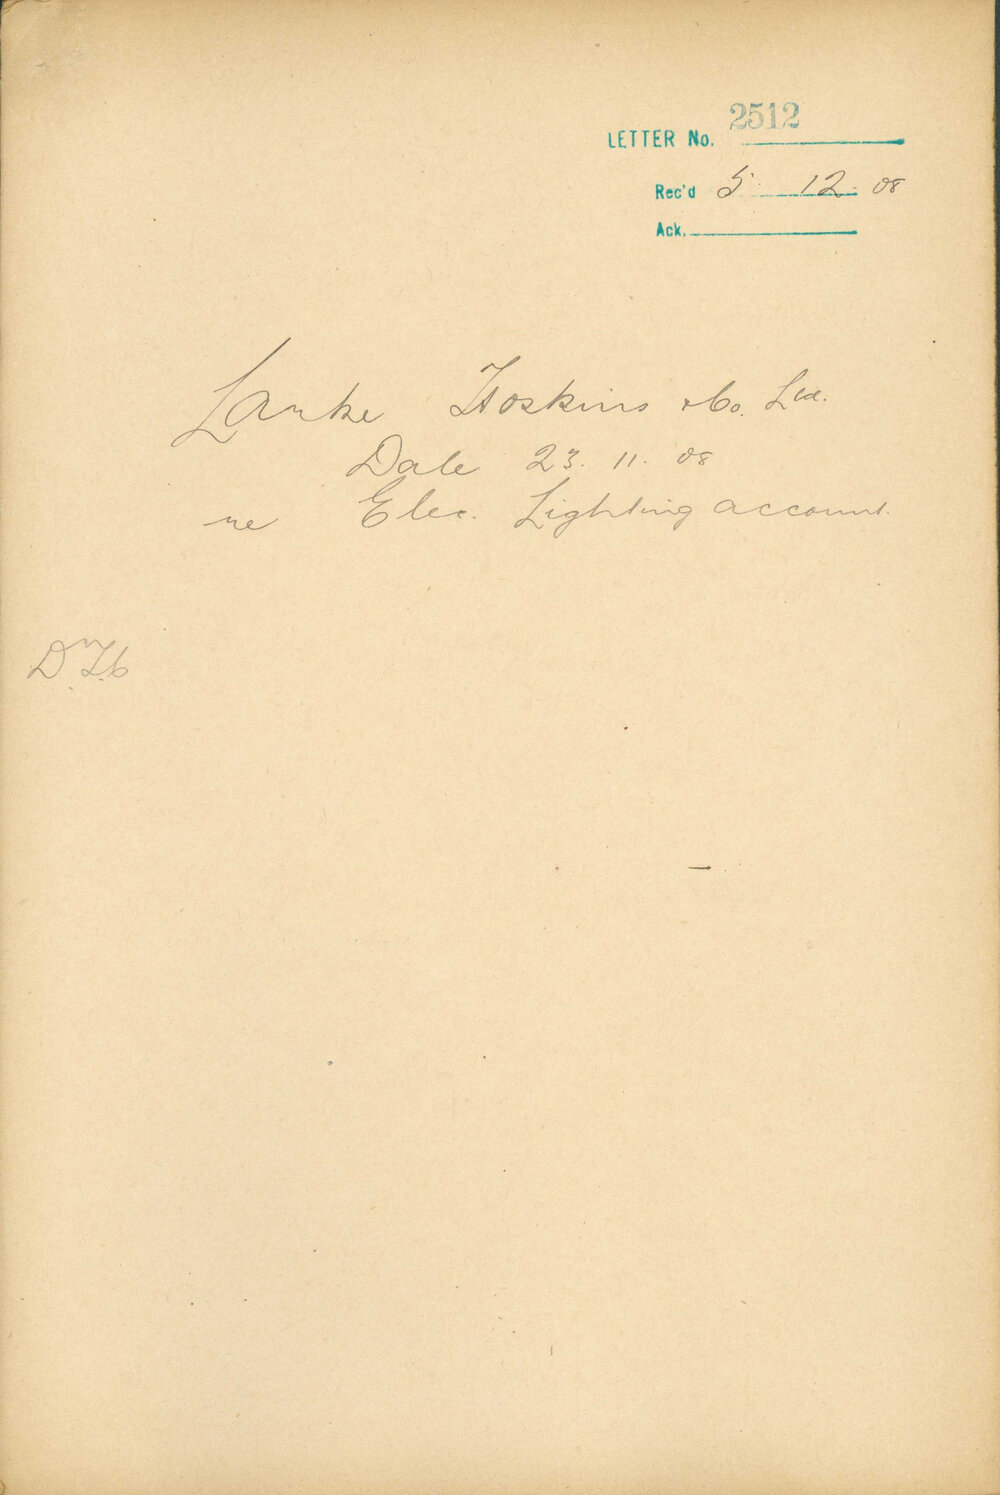 LETTER No. 2512
Rec'd 5 12 08
Ack.
Larke Hoskins & Co. Ltd.
Date 23. 11. 08
re Elec. Lighting account.